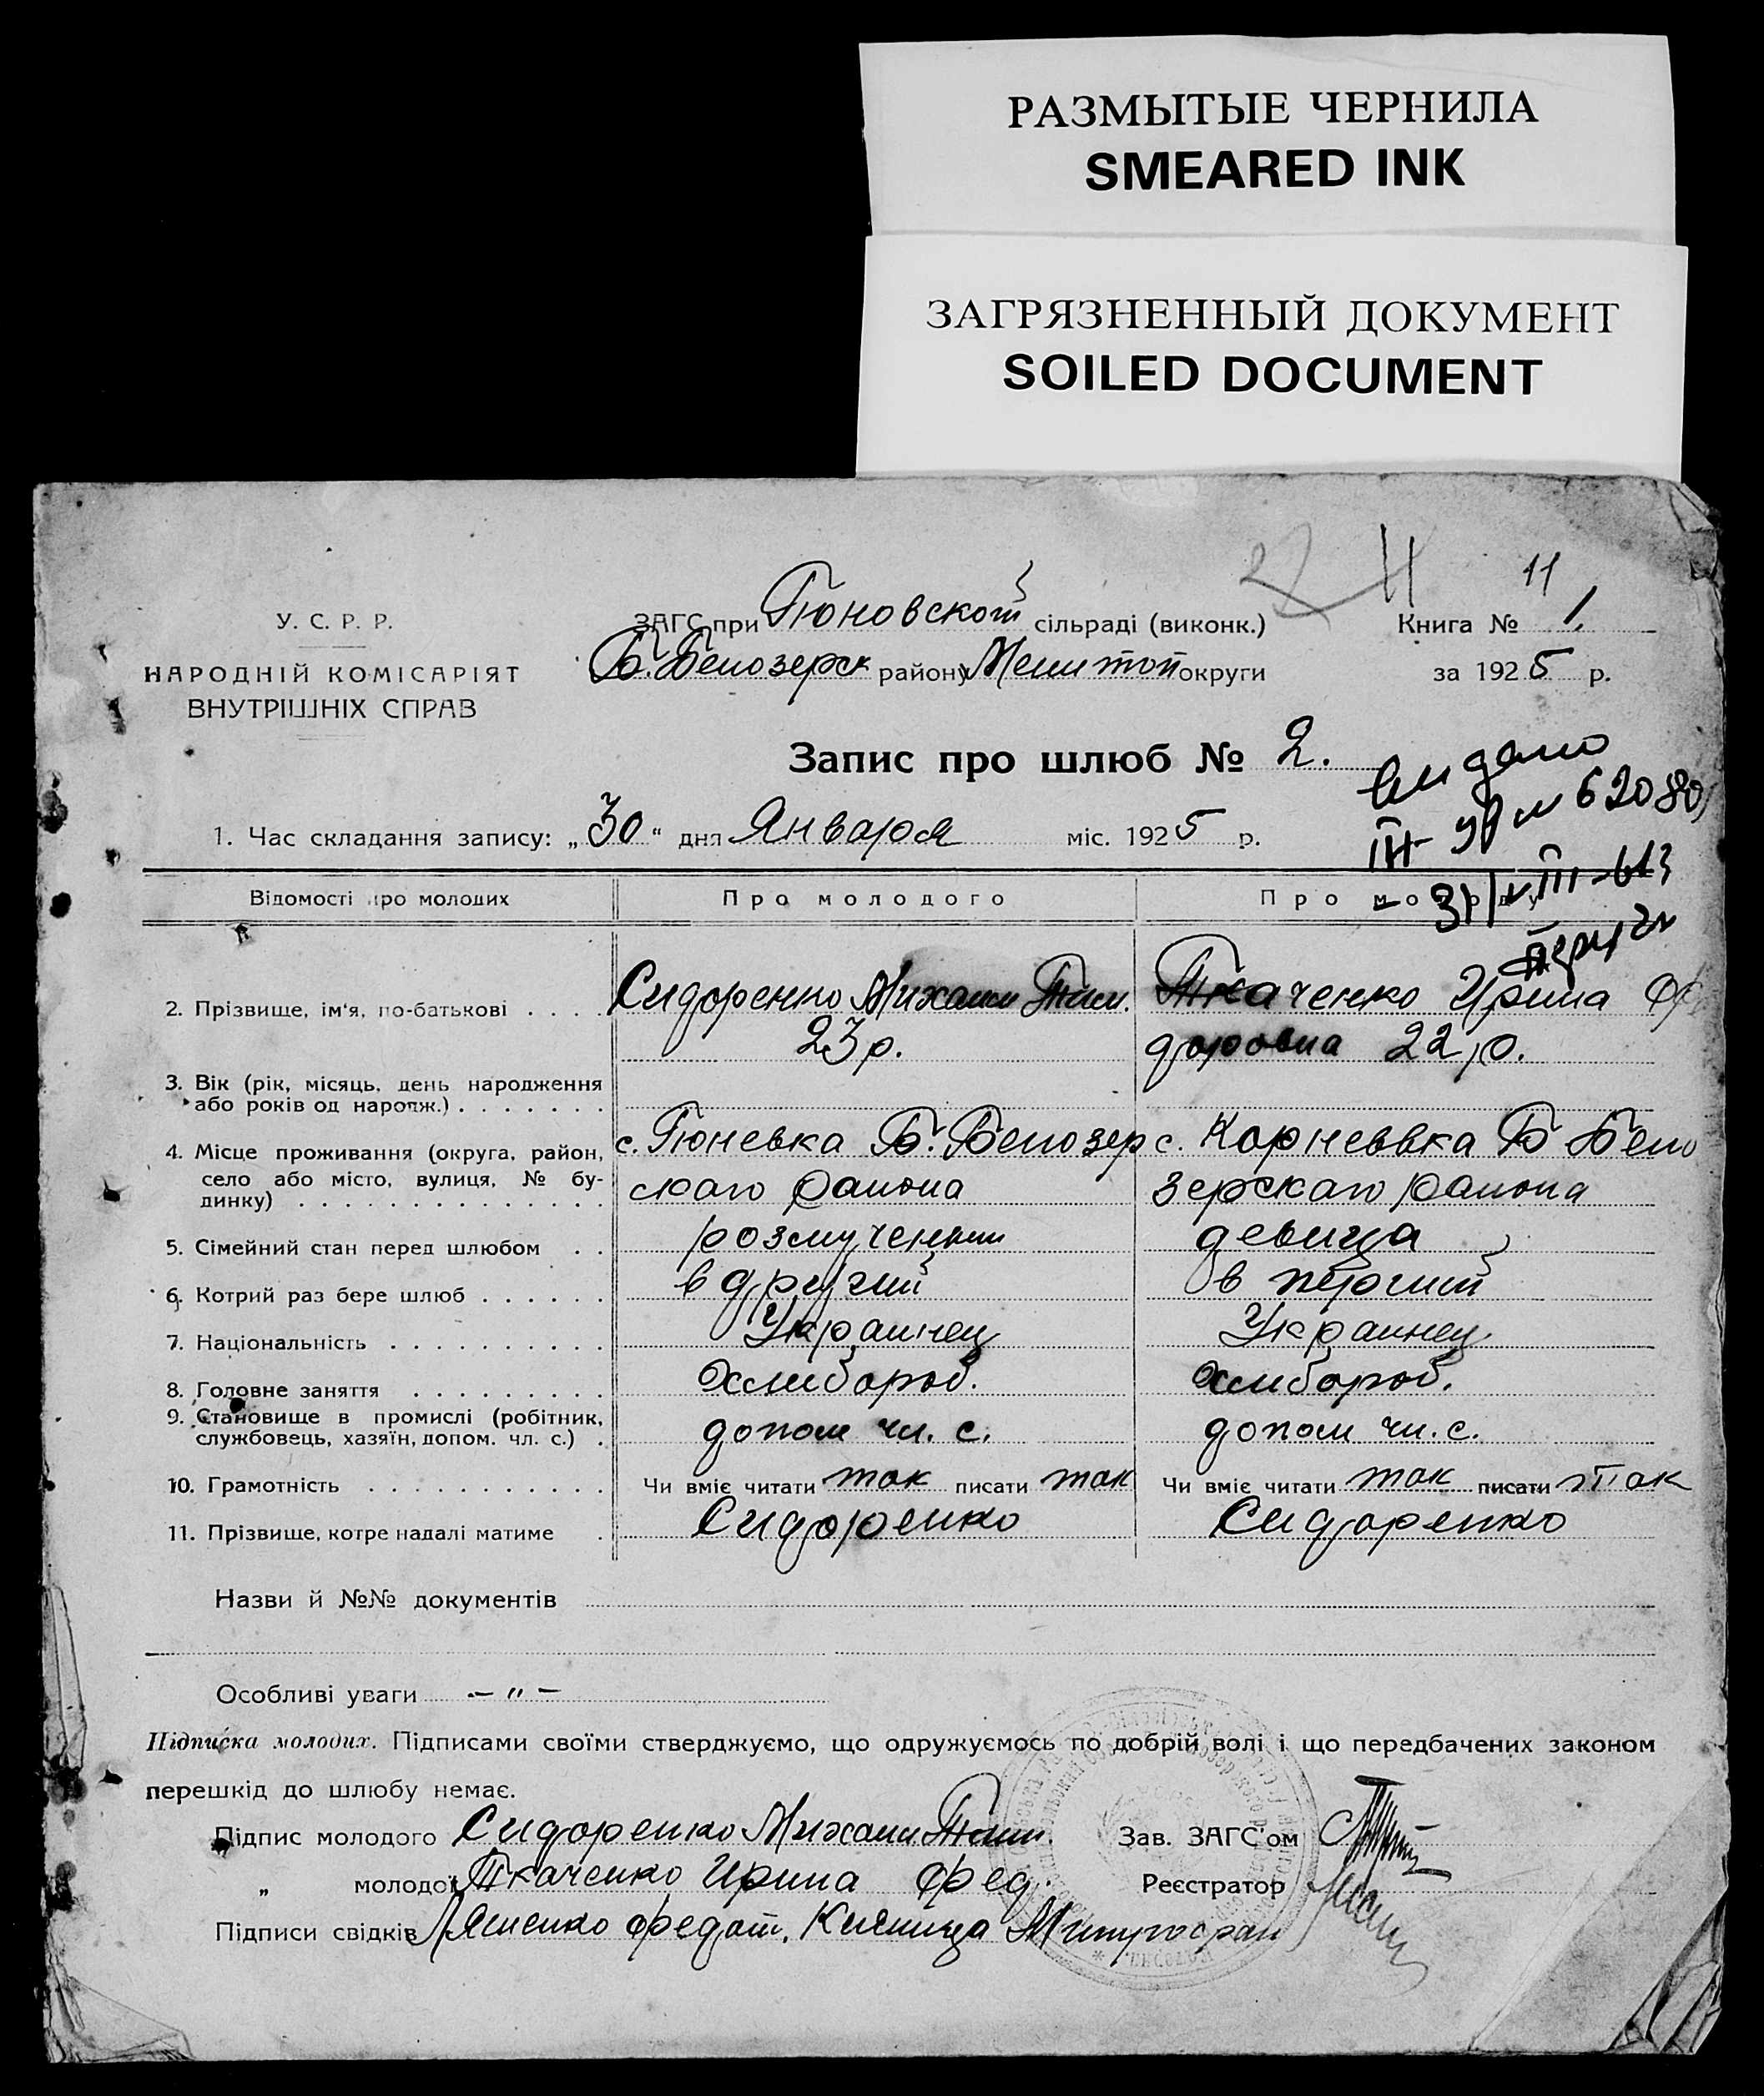 РАЗМЫТЫЕ ЧЕРНИЛА
SMEARED INK
ЗАГРЯЗНЕННЫЙ ДОКУМЕНТ
SOILED DOCUMENT
11
У. С. Р. Р.
НАРОДНІЙ КОМІСАРІЯТ
ВНУТРІШНІХ СПРАВ
ЗАГС при Гюновской сільраді (виконк.)
Б. Белозерск району Мелитоп округи
Книга № 1.
за 1925 р.
Запис про шлюб № 2.
видано
62080
1. Час складання запису: „30“ дня Января міс. 1925 р.
Відомості про молодих Про молодого Про молоду
2. Прізвище, ім'я, по-батькові . . . . Сидоренко Михаил Тим. Ткаченко Ирина Фе
23 р. доровна 22 р.
3. Вік (рік, місяць, день народження
або років од народж.) . . . . . . .
4. Місце проживання (округа, район, с. Гюневка Б. Белозер с. Корневвка Б Бело
село або місто, вулиця, № бу- скаго района зерскаго района
динку) . . . . . . . . . . . . . .
5. Сімейний стан перед шлюбом . . розлученнии девица
6. Котрий раз бере шлюб . . . . . . в другий в перший
7. Національність . . . . . . . . . . Украинец Украинец
8. Головне заняття . . . . . . . . . Хлибороб. хлибороб.
9. Становище в промислі (робітник,
службовець, хазяїн, допом. чл. с.) . допом чл. с. допом чл. с.
10. Грамотність . . . . . . . . . . . Чи вміє читати так писати так Чи вміє читати так писати так
11. Прізвище, котре надалі матиме . Сидоренко Сидоренко
Назви й №№ документів
Особливі уваги — „ —
Підписка молодих. Підписами своїми стверджуємо, що одружуємось по добрій волі і що передбачених законом
перешкід до шлюбу немає.
Підпис молодого Сидоренко Михаил Тим. Зав. ЗАГС'ом
„ молодої Ткаченко Ирина Фед. Реєстратор
Підписи свідків Ляшенко Федот. Кияница Митрофан